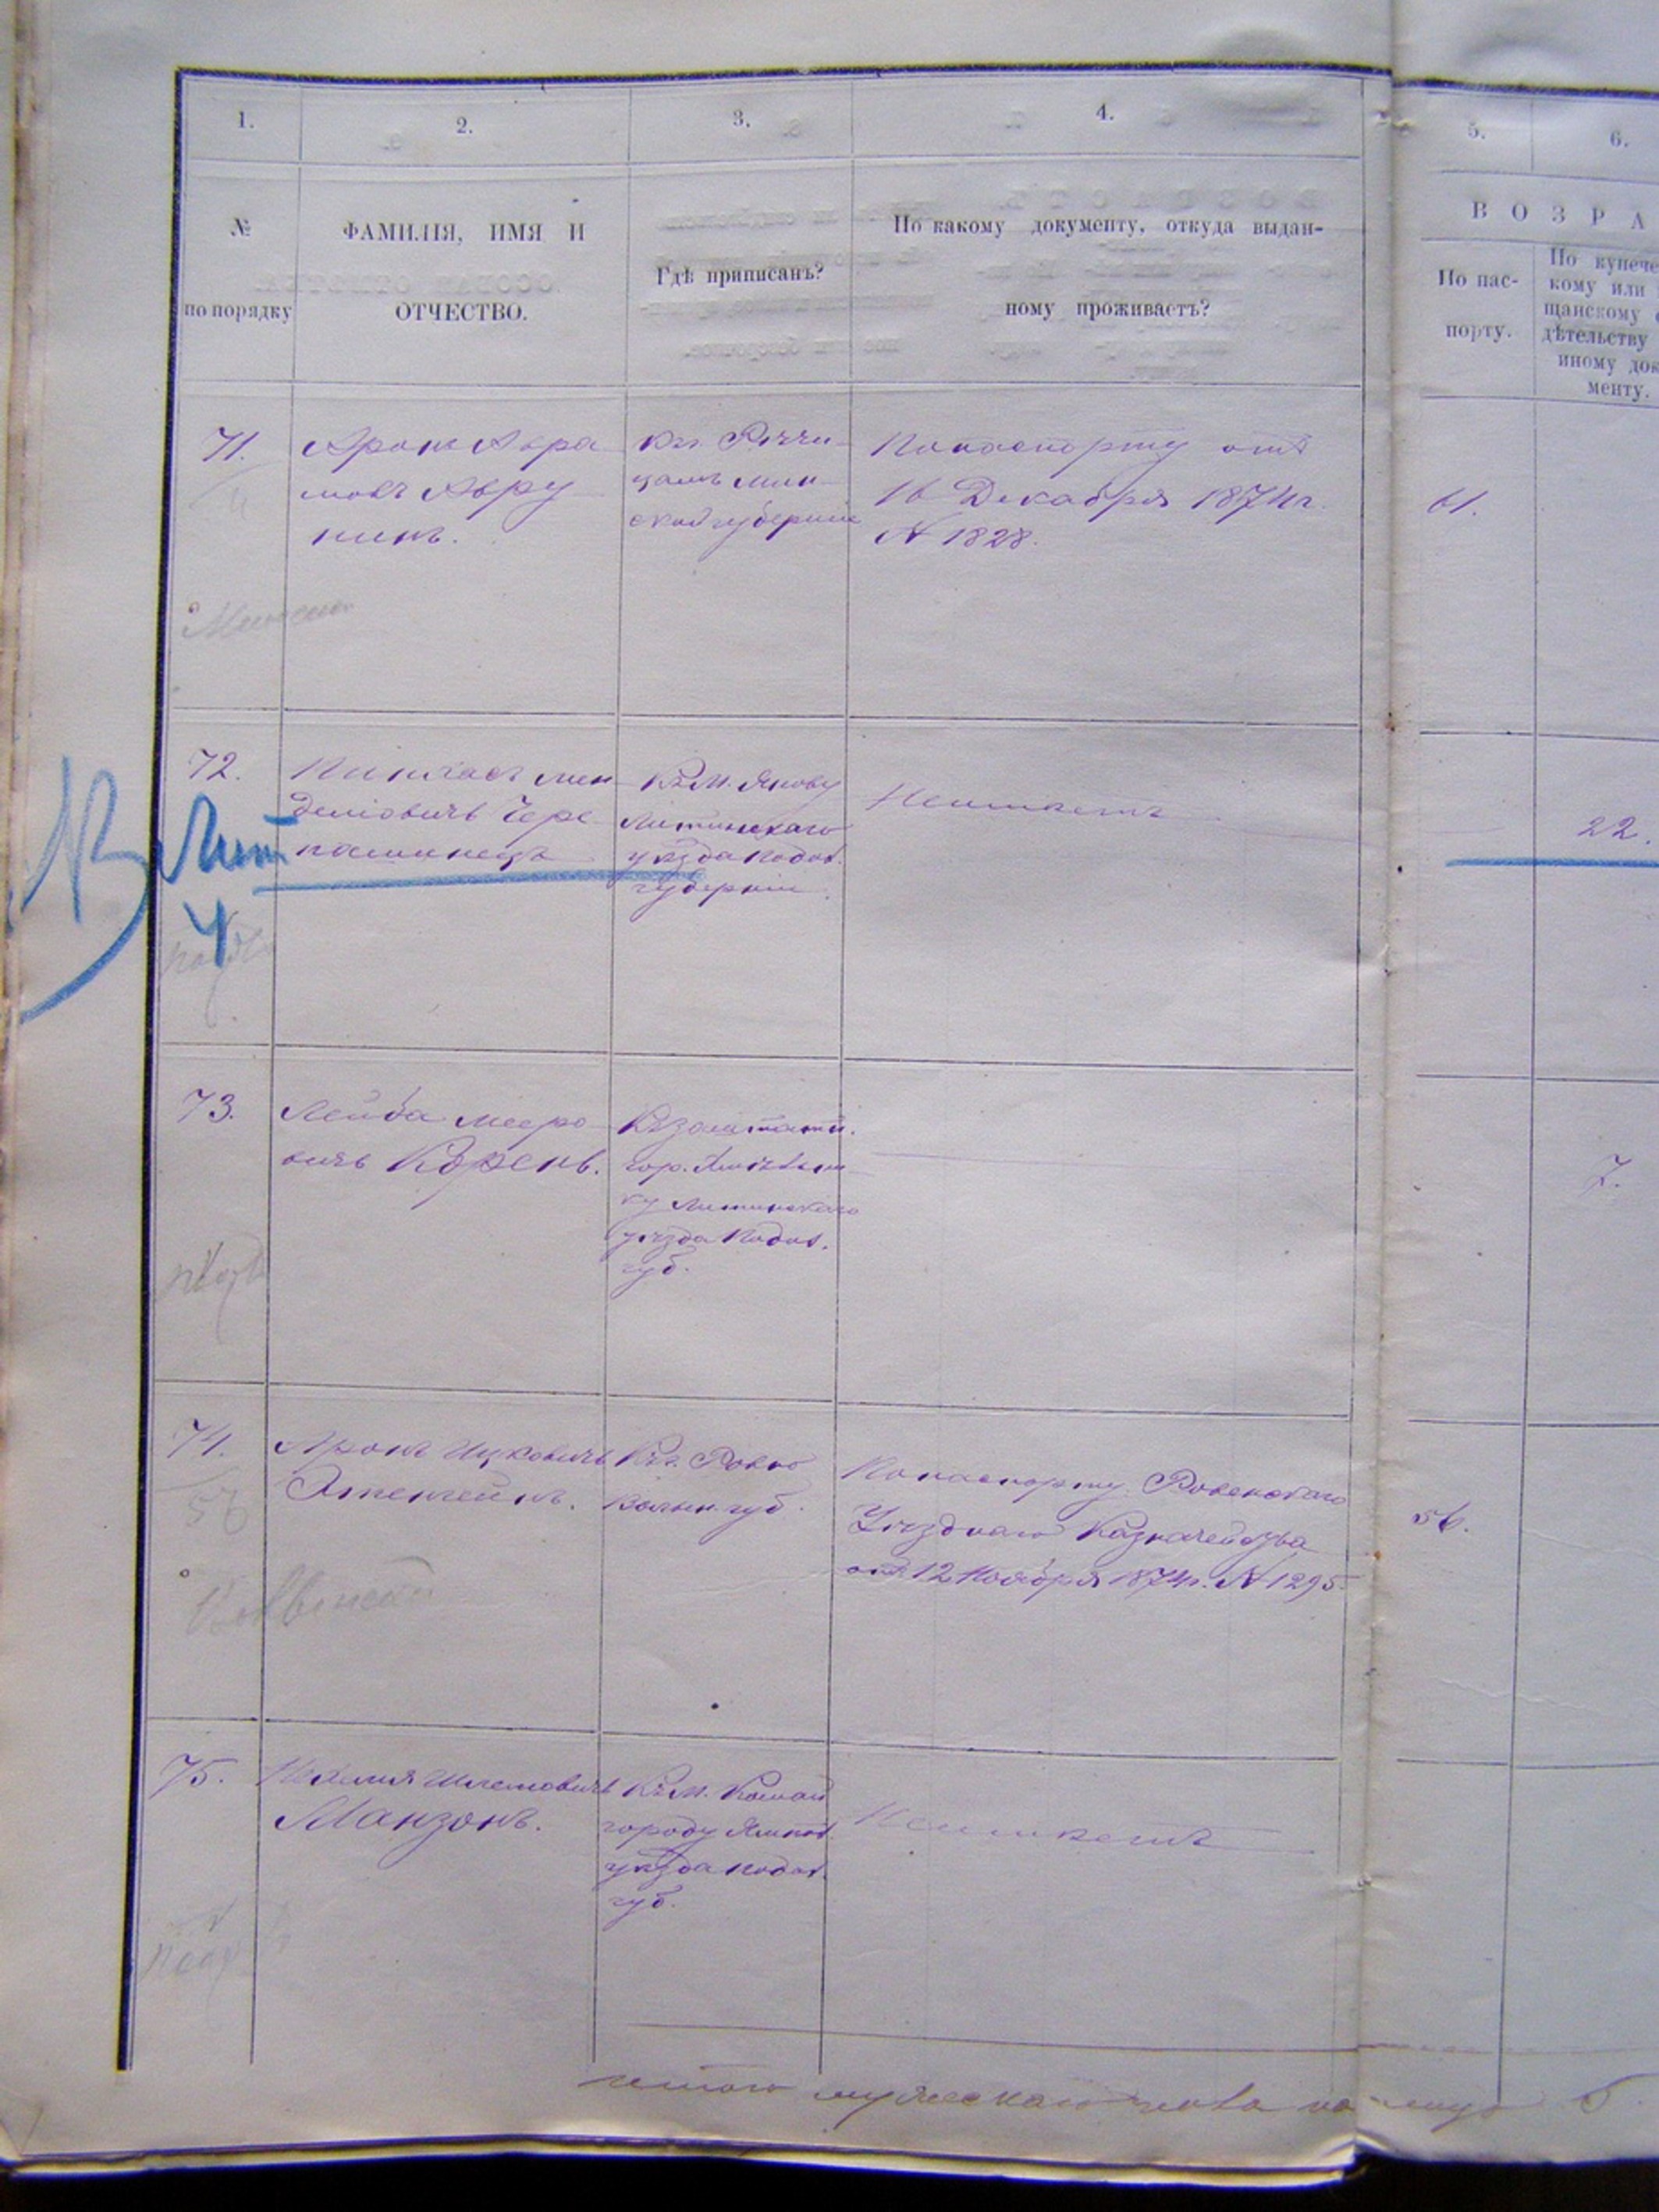 1.
2.
3.
4.
5.
6.
№
по порядку
ФАМИЛІЯ, ИМЯ И
ОТЧЕСТВО.
Гдѣ приписанъ?
По какому документу, откуда выдан-
ному проживаетъ?
ВОЗРА
По пас-
порту.
По купече
кому или
щанскому
дѣтельству
иному док
менту.
71.
Аронъ Авра
мовъ Авру
нинъ.
Къ Рѣчи
цамъ Мин
ской губерніи
По паспорту отъ
16 Декабря 1874 г.
№ 1828.
61.
72.
Пинхасъ Мен
деліовичъ Чере
пашинецъ
Къ м. Янову
Литинскаго
уѣзда Подол.
губерніи.
Неимѣетъ
22.
NB
Лит
73.
Лейба Мееро
вичъ Корень.
Къ заштатн.
гор.
ку Литинскаго
уѣзда Подол.
губ.
7.
74.
Аронъ Ицковичъ
Къ г. Ровно
Волын. губ.
По паспорту Ровенскаго
Уѣзднаго Казначейства
отъ 12 Ноября 1874 г. № 1295
56.
75.
Шлемовичъ
Манзонъ.
Къ м. Комай
городу Ямпол
уѣзда Подол.
губ.
Неимѣетъ
итого мужескаго пола 5